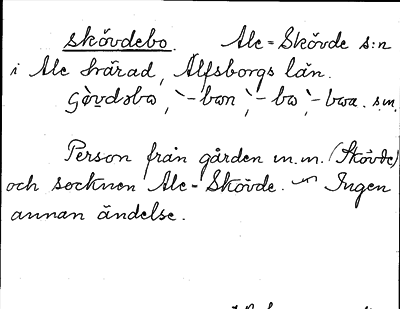 skövdebo. Ale-Skövde s:n
i Ale härad, Älfsborgs län.
-bon, -bo, -boa. s.m.
Person från gården m.m. (Skövde)
och socknen Ale-Skövde. Ingen
annan ändelse.